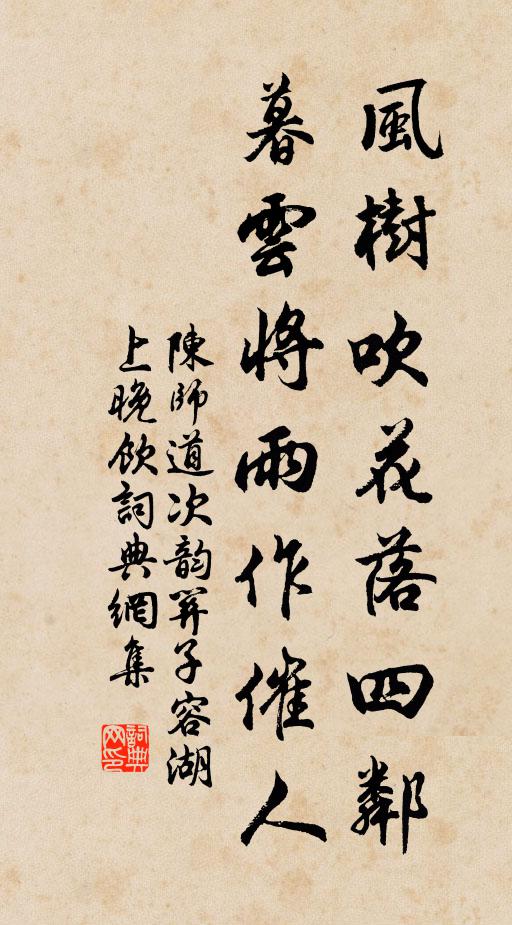 風樹吹花落四鄰
暮雲將雨作催人
陳師道次韵羿子容湖
上晚飲詞典網集
詞典
网印